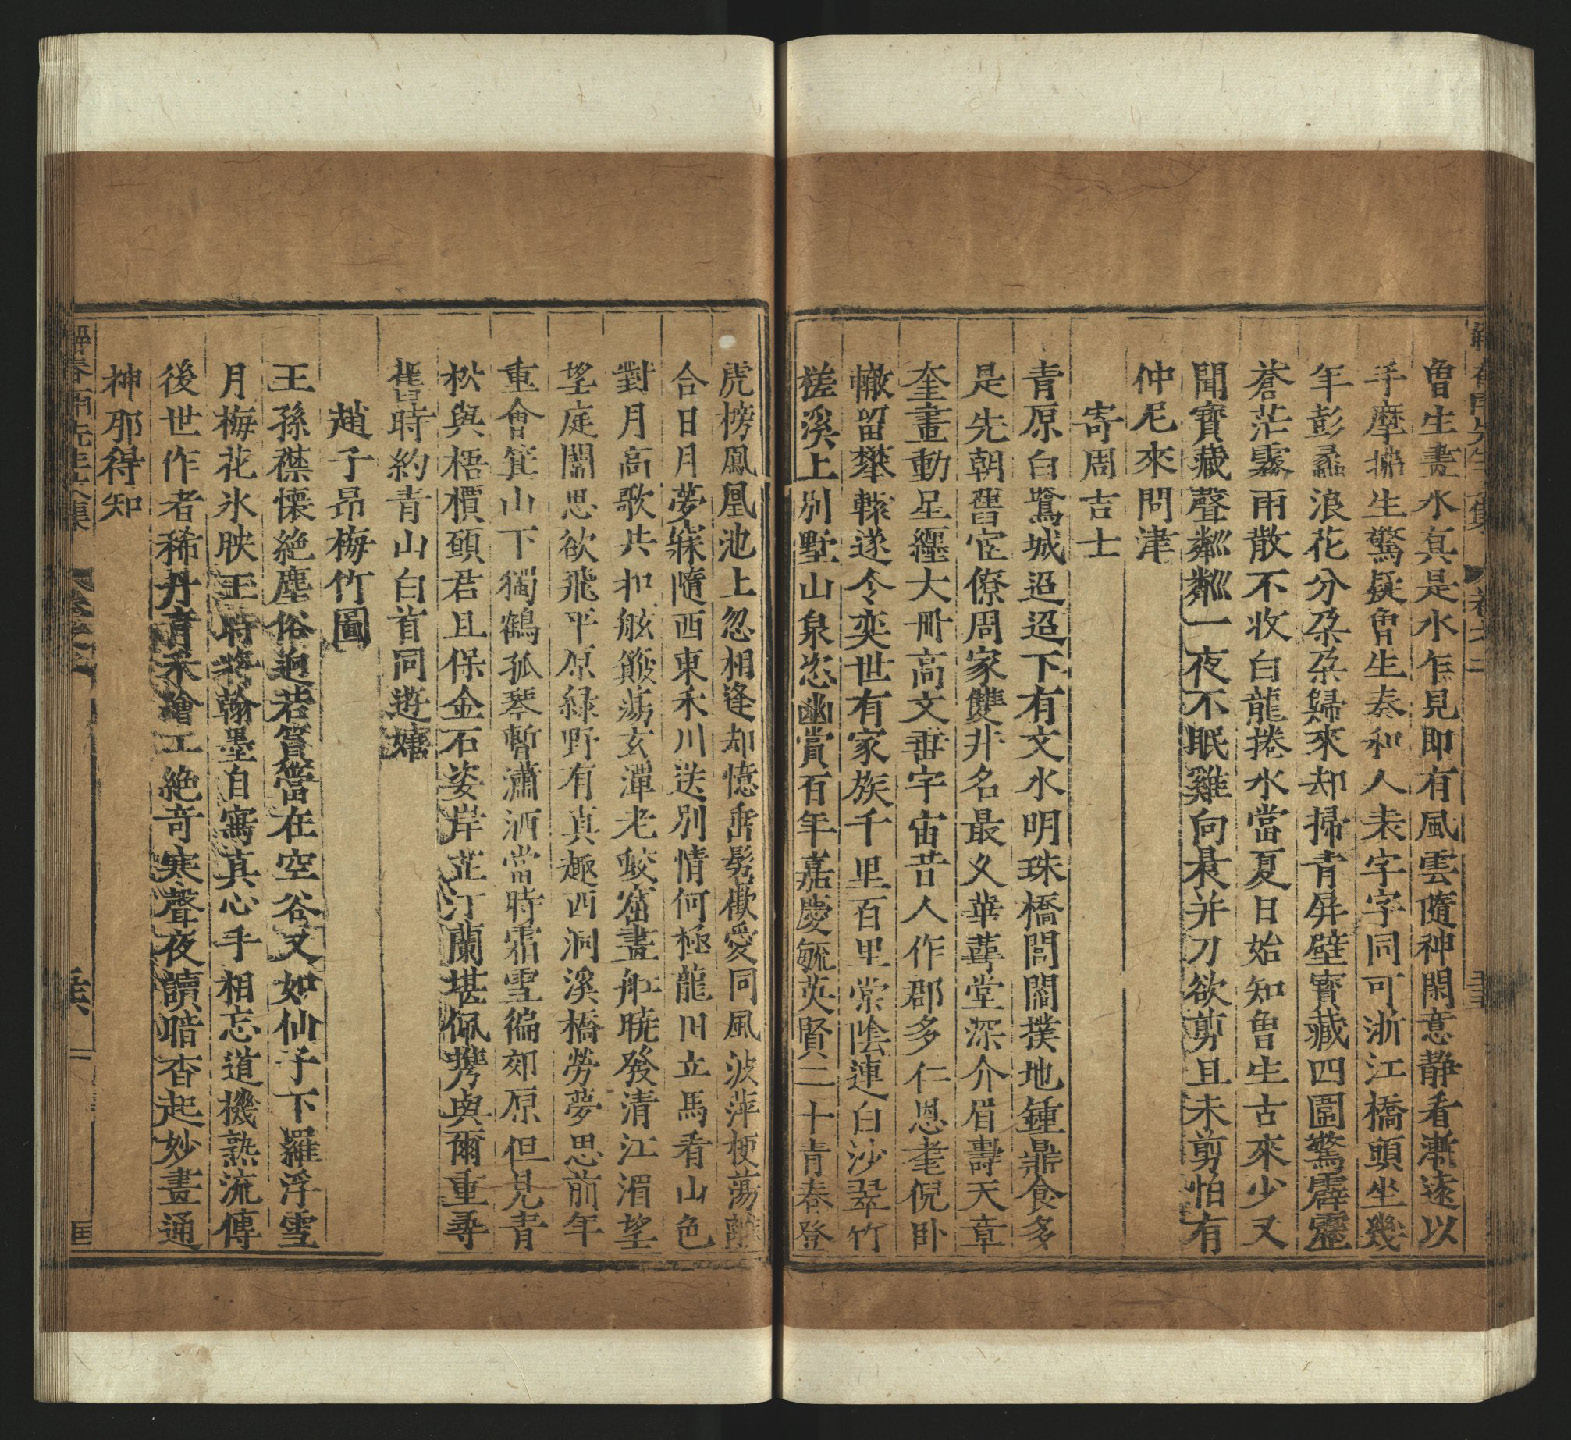 魯生畫水真是水乍見即有風雲隨神閑意静看漸遠以
手摩挲生驚疑魯生奏和人未字字同可浙江橋頭坐幾
年彭蠡浪花分朶朶歸來却掃青屏壁寳藏四圖驚霹靂
蒼茫霧雨散不收白龍捲水當夏日始知魯生古來少又
聞寳藏聲粼粼一夜不眠雞向晨并刀欲剪且未剪怕有
仲尼來問津
寄周吉士
青原白鷺城迢迢下有文水明珠橋閭閻撲地鍾鼎食多
是先朝舊宦僚周家雙井名最乂華萼堂深介眉壽天章
奎畫動星纏大冊高文垂宇宙昔人作郡多仁恩耄倪卧
轍留攀轅遂令奕世有家族千里百里棠陰連白沙翠竹
槎溪上别墅山泉恣幽賞百年嘉慶毓英賢二十青春登
虎榜鳳凰池上忽相逢却憶垂髫歡愛同風波萍梗蕩離
合日月夢寐隨西東禾川送别情何極龍川立馬看山色
對月高歌共扣舷簸蕩玄潭老蛟窟畫船曉發清江湄望
望庭闈思欲飛平原緑野有真趣西洞溪橋勞夢思前年
重會箕山下獨鶴孤琴暫瀟洒當時霜雪徧郊原但見青
松與梧檟頤君且保金石姿岸芷汀蘭堪佩携與爾重尋
舊時約青山白首同遊嬉
趙子昂梅竹圖
王孫襟懷絶塵俗逈若篔簹在空谷又如仙子下羅浮雪
月梅花氷映玉時將翰墨自寫真心手相忘道機熟流傳
後世作者稀丹青朱繪工絶奇寒聲夜讀暗香起妙畫通
神那得知